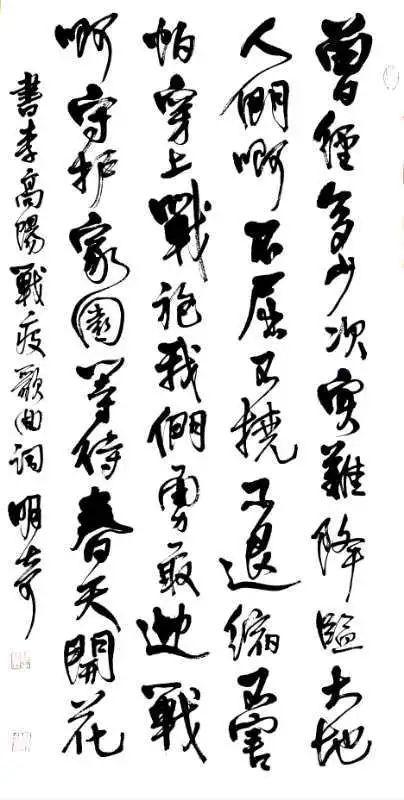 曾經多少次灾難降臨大地
人們啊不屈不撓不退縮不害
怕穿上戰袍我們勇敢迎戰
啊守护家園等待春天開花
書李高陽戰疫歌曲詞 明奇